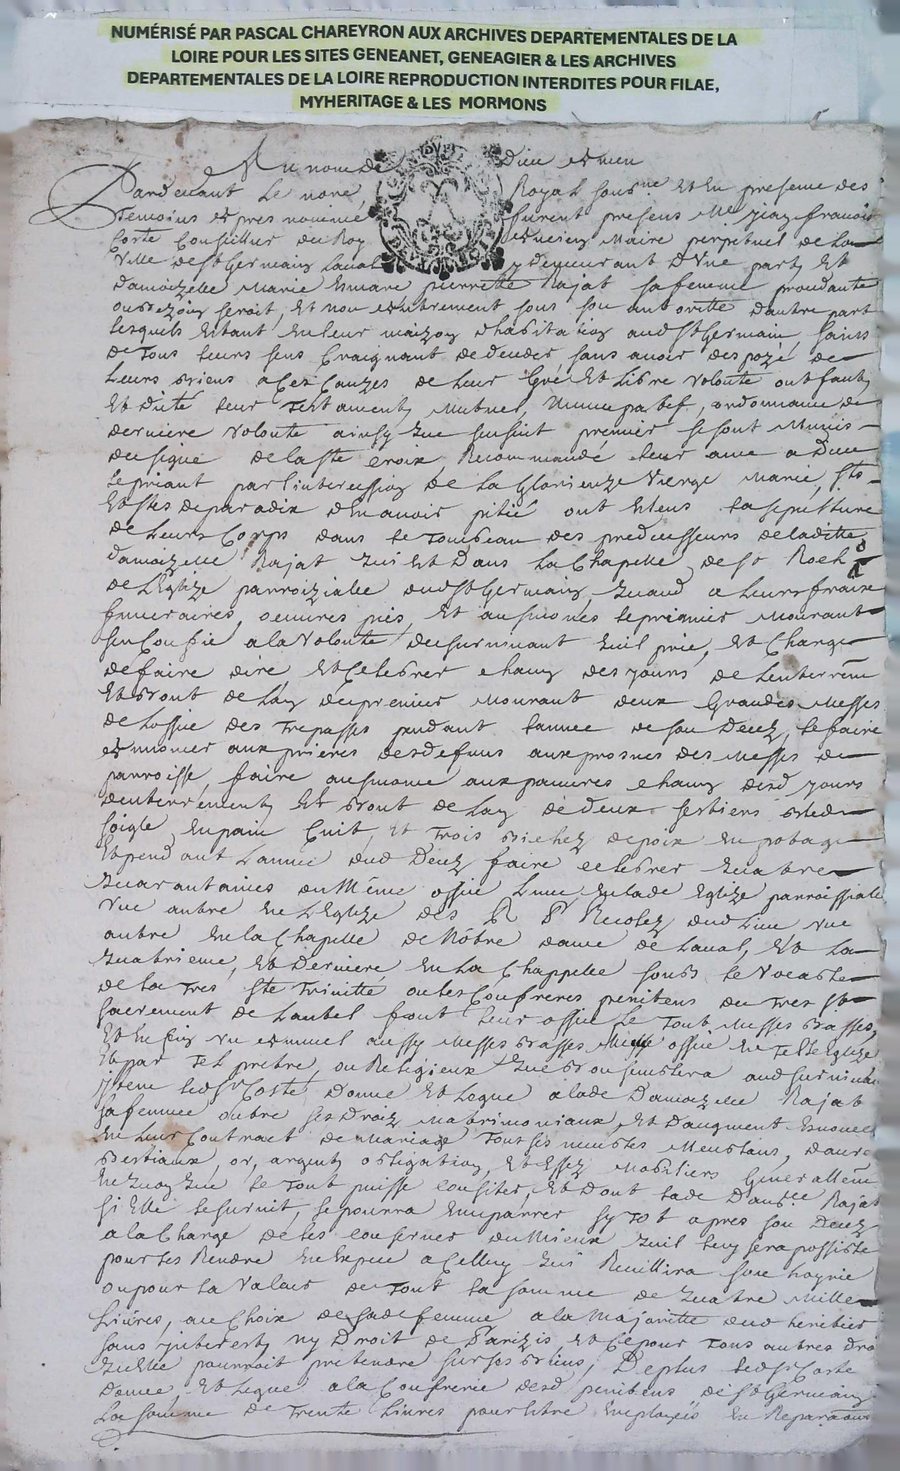 NUMÉRISÉ PAR PASCAL CHAREYRON AUX ARCHIVES DEPARTEMENTALES DE LA
LOIRE POUR LES SITES GENEANET, GENEAGIER & LES ARCHIVES
DEPARTEMENTALES DE LA LOIRE REPRODUCTION INTERDITES POUR FILAE,
MYHERITAGE & LES MORMONS
Au nom de Dieu
Pardevant Le no're Royal sousne Et En presence des
temoins furent presens Me francois
Coste Conseiller du Roy Maire perpetuel de La
Ville de St Germain Laval y demeurant D'Une part Et
damoizelle Marie pierrette Rajat sa femme
Et non autrement sous son autoritté d'autre part
Lesquels Estant En leur maizon d'habitation audt St Germain, sains
de Tous leurs sens Craignant de deceder sans avoir despozé de
Leurs biens a Ces Cauzes de Leur Gré Et Libre volonté ont fait
Et dicté Leur Testament Mutuel, Nuncupatif, ordonnance de
derniere volonté ainsy que sensuit premier se sont Munis
du signe de la Ste Croix, Recommandé Leur ame a Dieu
le priant par l'intercession de La Glorieuze Vierge Marie, Sts
Et Stes de paradix d'En avoir pitié ont Eleus La sepulture
de Leurs Corps dans le Tombeau des predecesseurs de laditte
damoizelle Rajat qui Est Dans La Chapelle de St Roch
de L'Eglize parroizialle dud St Germain, quand a Leurs fraix
funeraires, oeuvres pies, Et ausmones le premier Mourant
sen Confie a la Volonté du survivant quil prie, Et Charge
de faire dire, Et Celebrer chacun des jours de L'enterrem
Et Bout de L'an du premier Mourant deux Grandes Messes
de L'office des Trepasses pendant L'année de son Decez, le faire
aux prieres des defuns aux prosnes des Messes de
parroisse, faire ausmone aux pauvres chacun desd jours
d'enterrement Et Bout de L'an de deux septiers Bled
soigle En pain Cuit, Et Trois Bichez de poix En potage
Et pendant L'année dud Decez faire celebrer quatre
quarantaines du Même office L'une En lade Eglize parroissiale
Une autre En L'Eglize des R Ps Recolez dud Lieu Une
autre En la Chapelle de Nôtre dame de Laval, Et La
quatrieme, Et Derniere En La Chappelle sous le Vocable
de La Tres Ste Trinitte ou les Confreres penitens du Tres St
sacrement de L'autel font Leur office Le Tout Messes Basses,
Et En fin Un annuel aussy Messes Basses office En Telle Eglize
Et par Tel pretre, ou Religieux que Bon semblera aud survivant
Item led Sr Coste Donne Et Legue a lade Damoizelle Rajat
sa femme outre ses Droiz Matrimoniaux, Et D'augment
En Leur Contract de Mariage Tous ses meubles Meublans,
Bestiaux, or, argent, obligation, Et Effez Mobiliers Generallem
En quoy que le Tout puisse Consister, Et Dont lade Damlle Rajat
si Elle le survit, se pourra Emparrer sy Tot apres son Decez
a la Charge de les Conserver du Mieux quil luy sera possible
pour les Rendre En Espece a Celluy qui Recuillira son hoyrie
ou pour La Valeur du Tout La somme de quatre Mille
Livres, au Choix de sade femme a la Majoritté dud heritier
sans ny Droit de Et Ce pour Tous autres dro
quelle pourroit pretendre sur ses Biens, De plus led Sr Coste
Donne, Et Legue a la Confrerie desd penitens de St Germain
La somme de Trente Livres pour Etre Employés En Reparations